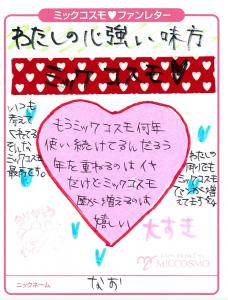 ミックコスモ♥ファンレター
わたしの心強い味方
ミックコスモ♥
いつも
考えて
くれてる
そんな
ミックコスモ
最高です。
もうミックコスモ何年
使い続けてるんだろう
年を重ねるのはイヤ
だけどミックコスモ
歴が増えるのは
嬉しい
わたしの
周りでも
ミックコスモ
ファンが増
えてます
大すき
MICCOSMO
ニックネーム
なお